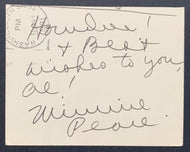 PM
Howdee!
& Best
wishes to you,
Al!
Minnie
Pearl